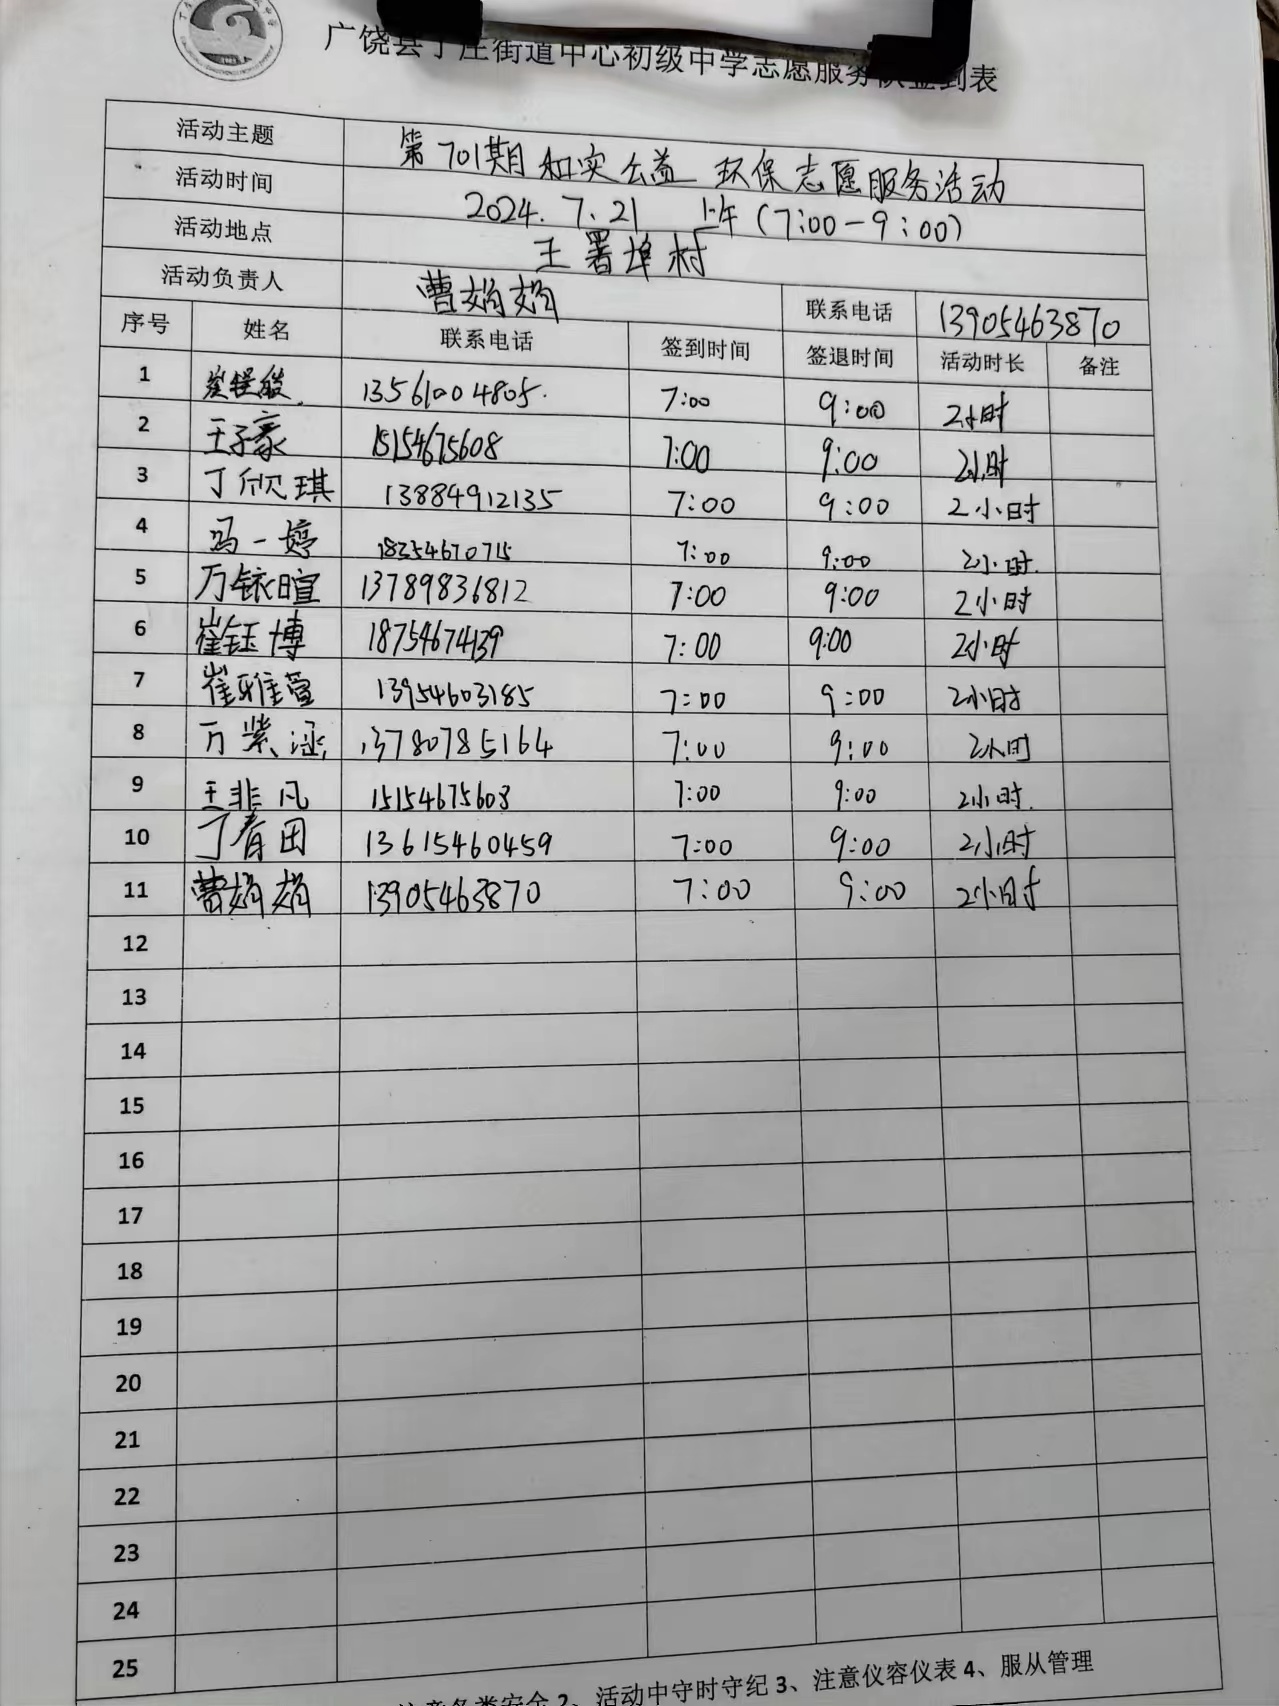 广饶县丁庄街道中心初级中学志愿服务队签到表
活动主题 第701期和实公益 环保志愿服务活动
活动时间 2024.7.21 上午(7:00-9:00)
活动地点 王署埠村
活动负责人 曹娟娟 联系电话 13905463870
序号 姓名 联系电话 签到时间 签退时间 活动时长 备注
1 13561004805. 7:00 9:00 2小时
2 王子豪 15154675608 7:00 9:00 2小时
3 丁欣琪 13884912135 7:00 9:00 2小时
4 冯一婷 18254670715 7:00 9:00 2小时.
5 万铱暄 13789836812 7:00 9:00 2小时
6 崔钰博 18754674139 7:00 9:00 2小时
7 崔雅萱 13954603185 7:00 9:00 2小时
8 万紫涵 13780785164 7:00 9:00 2小时
9 王非凡 15154675608 7:00 9:00 2小时.
10 丁春田 13615460459 7:00 9:00 2小时
11 曹娟娟 13905463870 7:00 9:00 2小时
12
13
14
15
16
17
18
19
20
21
22
23
24
25
注意各类安全 2、活动中守时守纪 3、注意仪容仪表 4、服从管理